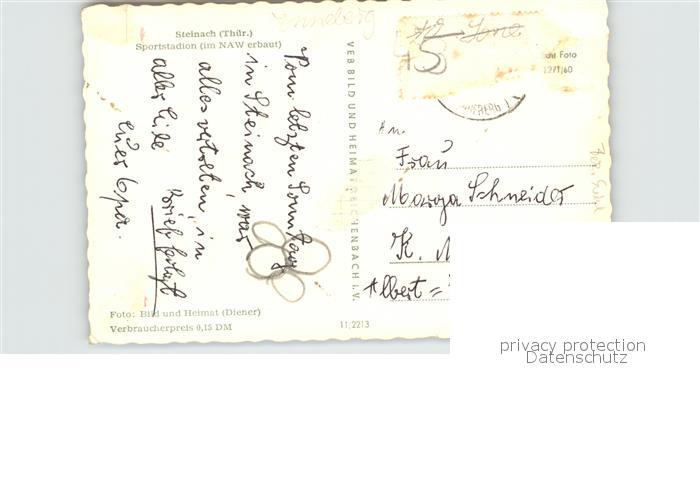 Steinach (Thür.)
Sportstadion (im NAW erbaut)
Vom letzten Sonntag
in Steinach, war
alles vertreten, in
aller Eile
Brief folgt
Euer Opa.
VEB BILD UND HEIMAT REICHENBACH I. V.
Foto
12/1/60
An
Frau
Marga Schneider
K. M
Albert =
Foto: Bild und Heimat (Diener)
Verbraucherpreis 0,15 DM
11/2213
privacy protection
Datenschutz